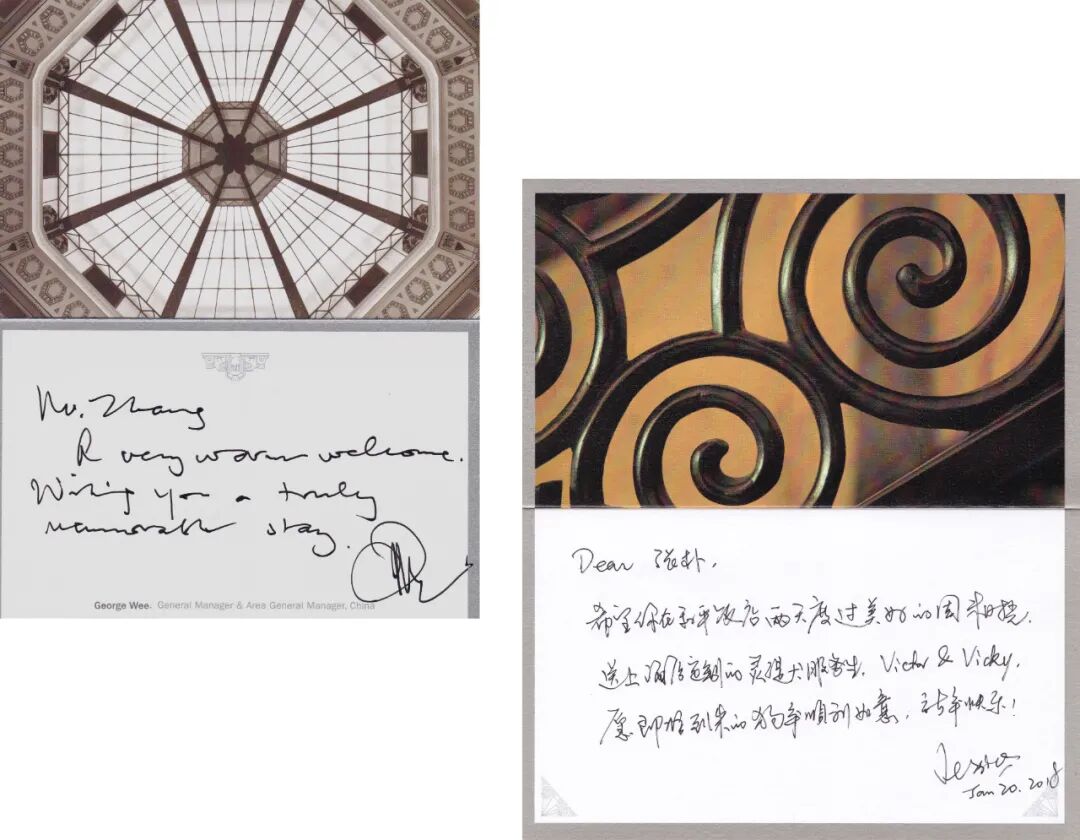 Mr. Zhang
A very warm welcome.
Wishing you a truly
memorable stay.
George Wee. General Manager & Area General Manager, China
Dear 张朴,
希望你在和平饭店两天度过美好的周末时光.
送上酒店定制的灵提犬服务生, Victor & Vicky,
愿即将到来的狗年顺利如意, 新年快乐!
Jessica
Jan 20. 2018